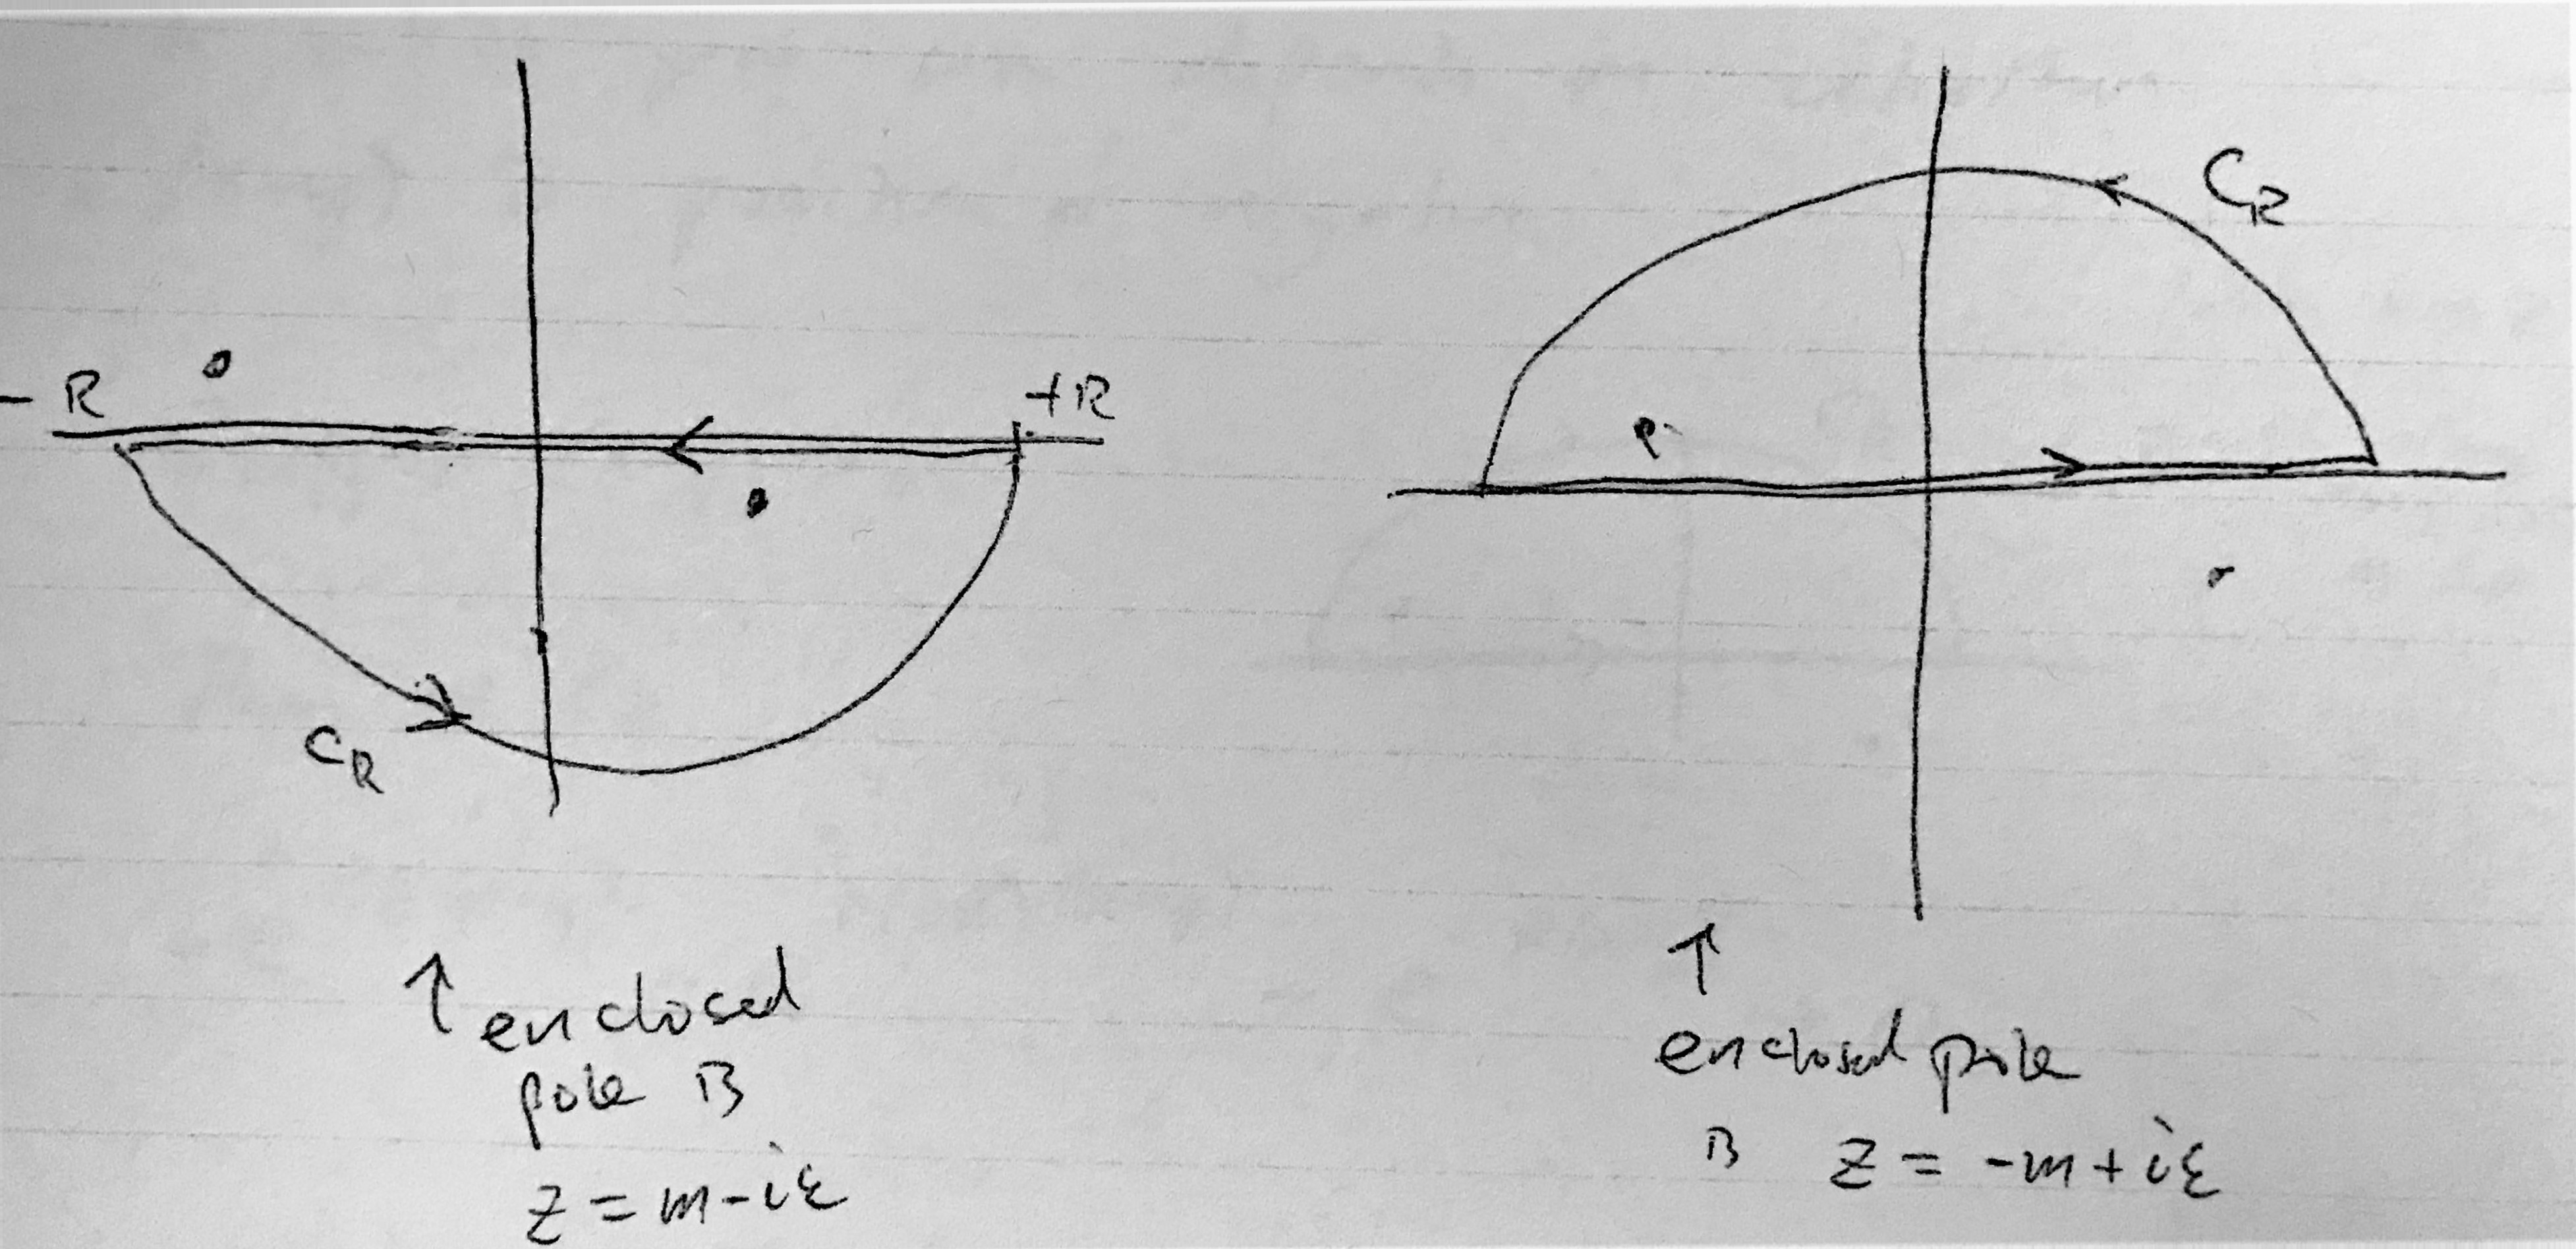 - R
+R
C_R
↑ enclosed
pole is
z = m - iε
C_R
↑
enclosed pole
is z = -m + iε